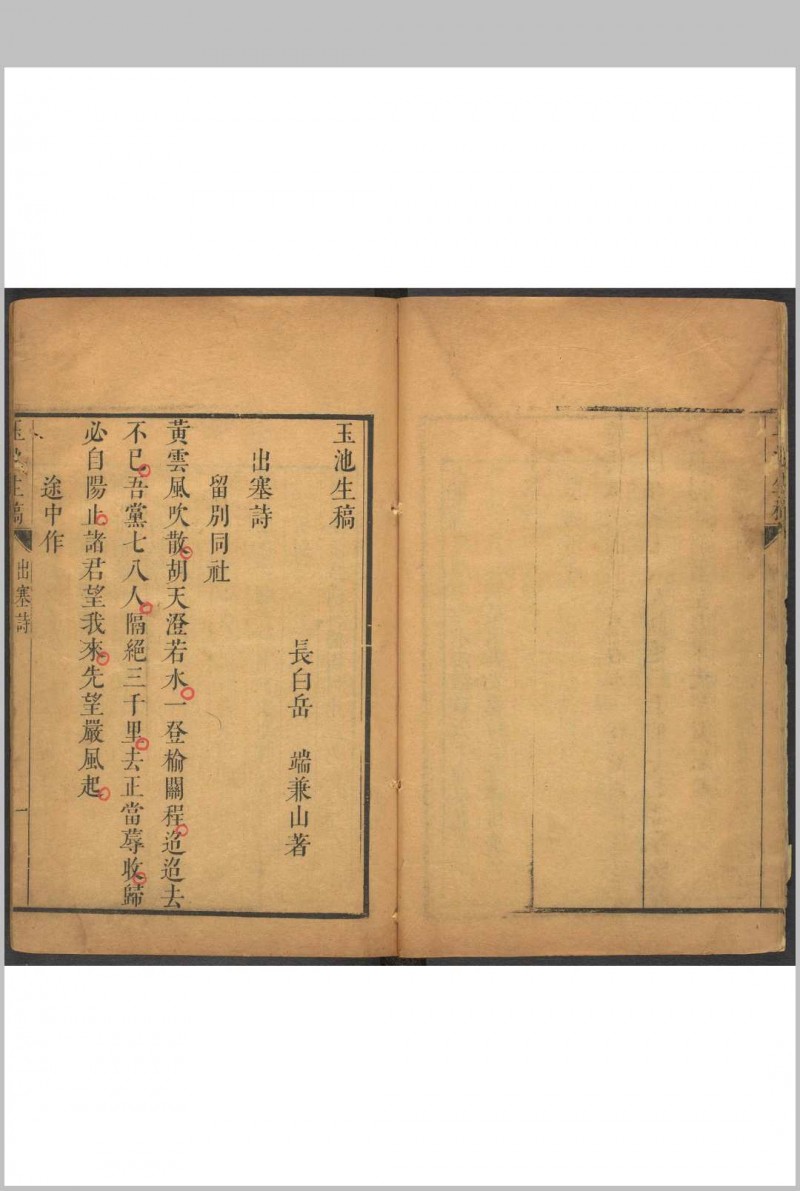 玉池生稿
長白岳　端兼山著
出塞詩
留別同社
黃雲風吹散胡天澄若水一登榆關程迢迢去
不已吾黨七八人隔絕三千里去正當蓐收歸
必自陽止諸君望我來先望嚴風起
途中作
玉池生稿　出塞詩　一